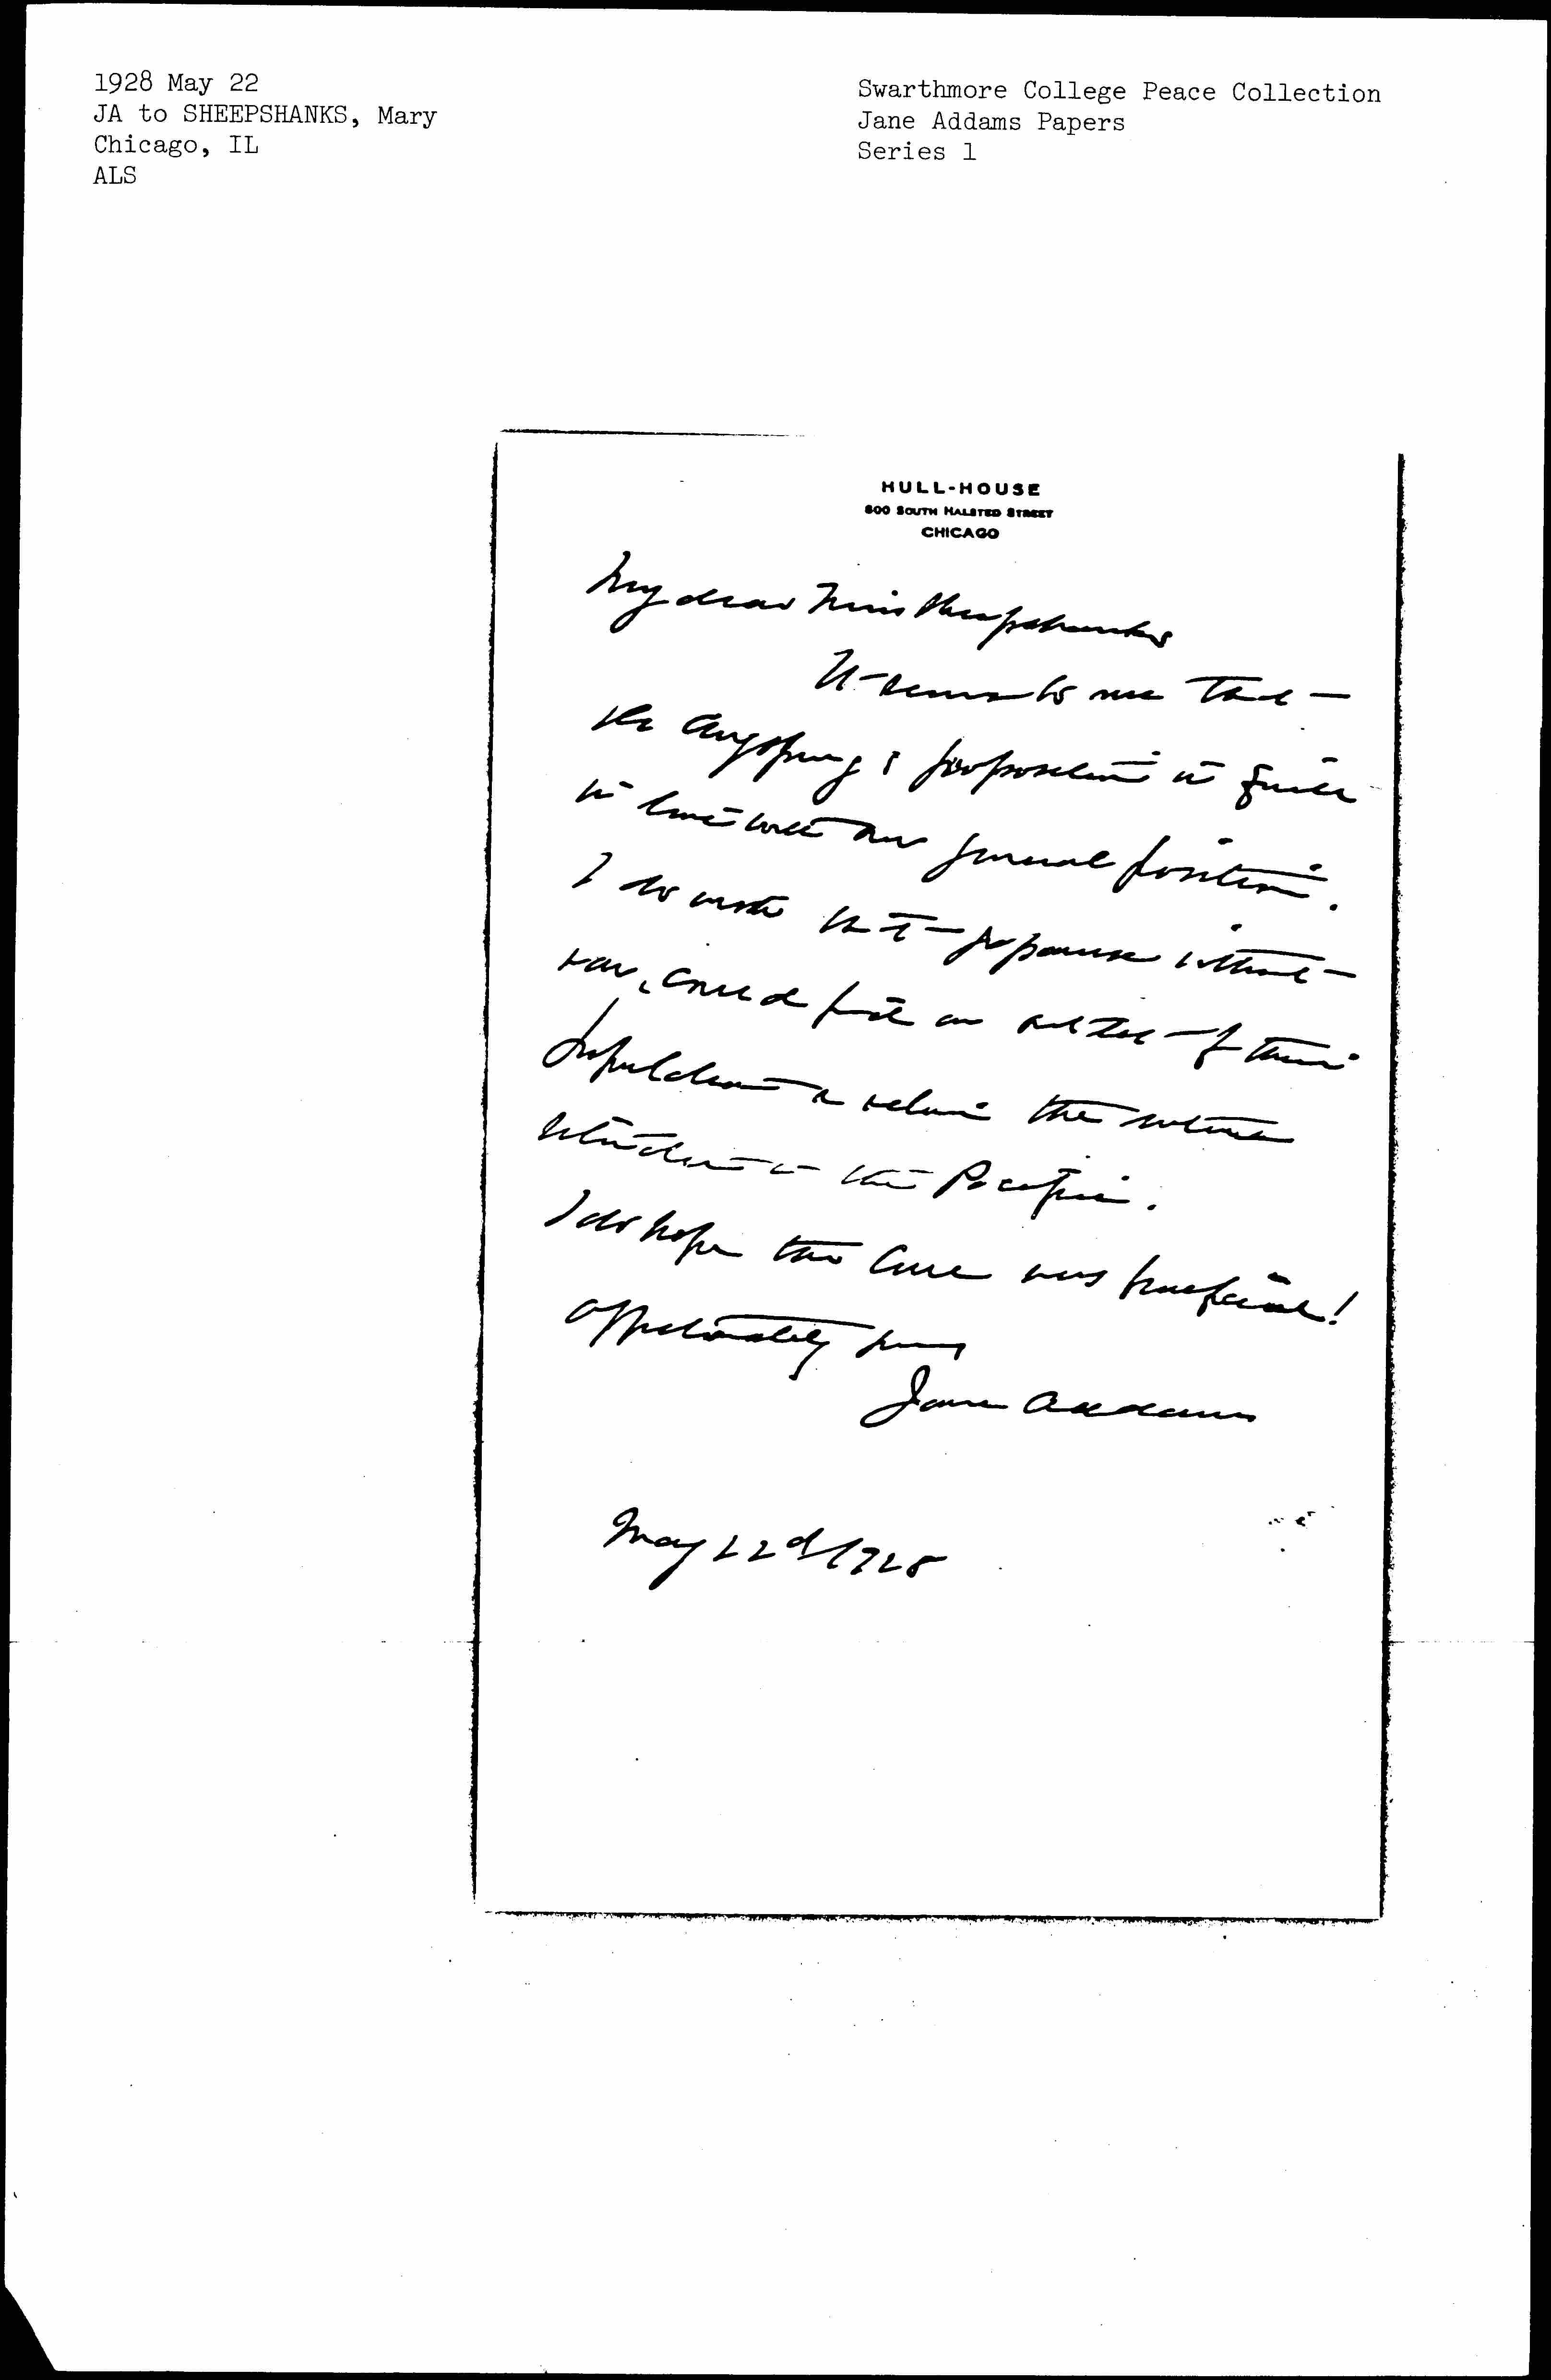 1928 May 22
JA to SHEEPSHANKS, Mary
Chicago, IL
ALS
Swarthmore College Peace Collection
Jane Addams Papers
Series 1
HULL-HOUSE
800 SOUTH HALSTED STREET
CHICAGO
My dear Miss Sheepshanks
It seems to me that
the proposition is quite
in line with our general position.
I do wish that Japanese without
war, could find an outlet of their
population & relieve the
situation in the Pacific.
I do hope the cure was beneficial!
Affectionately yours
Jane Addams
May 22d 1928